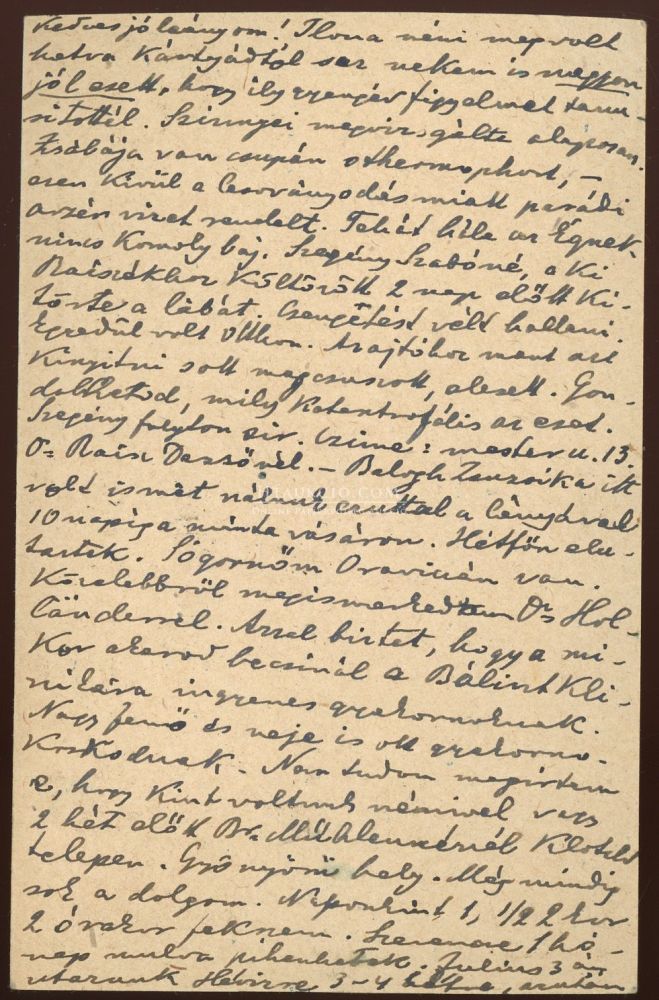 Kedves jó leányom! Ilona néni meg volt
hatva Kártyádtól sőt nekem is nagyon
jól esett, hogy ily gyengéd figyelmet tanu-
sítottál. Szinnyei megvizsgálta alaposan.
Zsábája van csupán s thermophort, –
ezen Kivül a lesoványodás miatt parádi
arzén vizet rendelt. Tehát hála az Égnek
nincs Komoly baj. Szegény Szabóné, a Ki
Raiszékhoz Költözött 2 nap előtt Ki-
törte a lábát. Csengetést vélt hallani.
Egyedül volt otthon. Az ajtóhoz ment azt
Kinyitni s ott megcsuszott, elesett. Gon-
dolhatod, mily Katasztrofális az eset.
Szegény folyton sir. Czime: mester u. 13.
Dr Raisz Dezsőnél. – Balogh Zsuzsika itt
volt ismét nálunk ezuttal a lányával
10 napig a minta vásáron. Hétfőn elu-
taztak. Sógornőm Oraviczán van.
Közelebbről megismerkedtem Dr Hol-
länderrel. Azzal biztat, hogy a mi-
Kor akarod becsinál a Bálint Kli-
nikára ingyenes gyakornoknak.
Nagy Jenő és neje is ott gyakorno-
KosKodnak. – Nem tudom megirtam
e, hogy Kint voltunk némivel vagy
2 hét előtt Br. Mühlennénél Klotild
telepen. Gyönyörü hely. Még mindig
sok a dolgom. Naponkint 1, 1/2 2 kor
2 órakor fekszem. Szerencse 1 hó-
nap mulva pihenhetek. Julius 3 án
utazunk Hévizre 3–4 hétre, azután